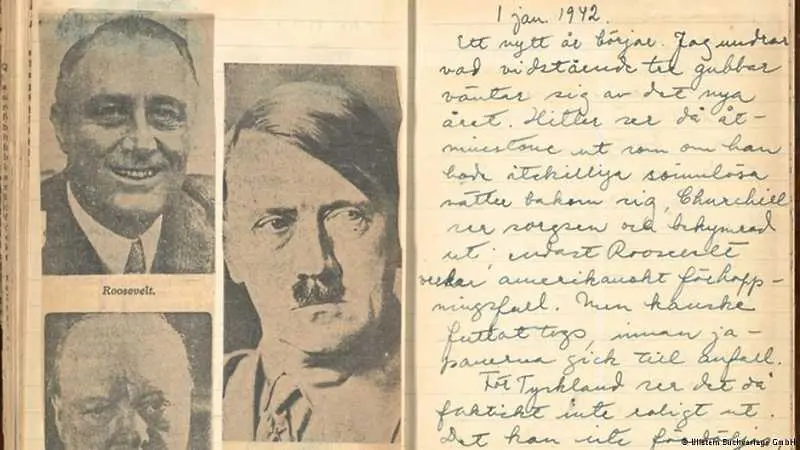 Roosevelt.
1 jan. 1942.
Ett nytt år börjar. Jag undrar
vad vidstående tre gubbar
väntar sig av det nya
året. Hitler ser då åt-
minstone ut som om han
hade åtskilliga sömnlösa
nätter bakom sig, Churchill
ser sorgsen och bekymrad
ut, endast Roosevelt
verkar amerikanskt förhopp-
ningsfull. Men kanske
fottot togs, innan ja-
panerna gick till anfall.
För Tyskland ser det då
faktiskt inte roligt ut.
Det kan inte
© Ullstein Buchverlage GmbH